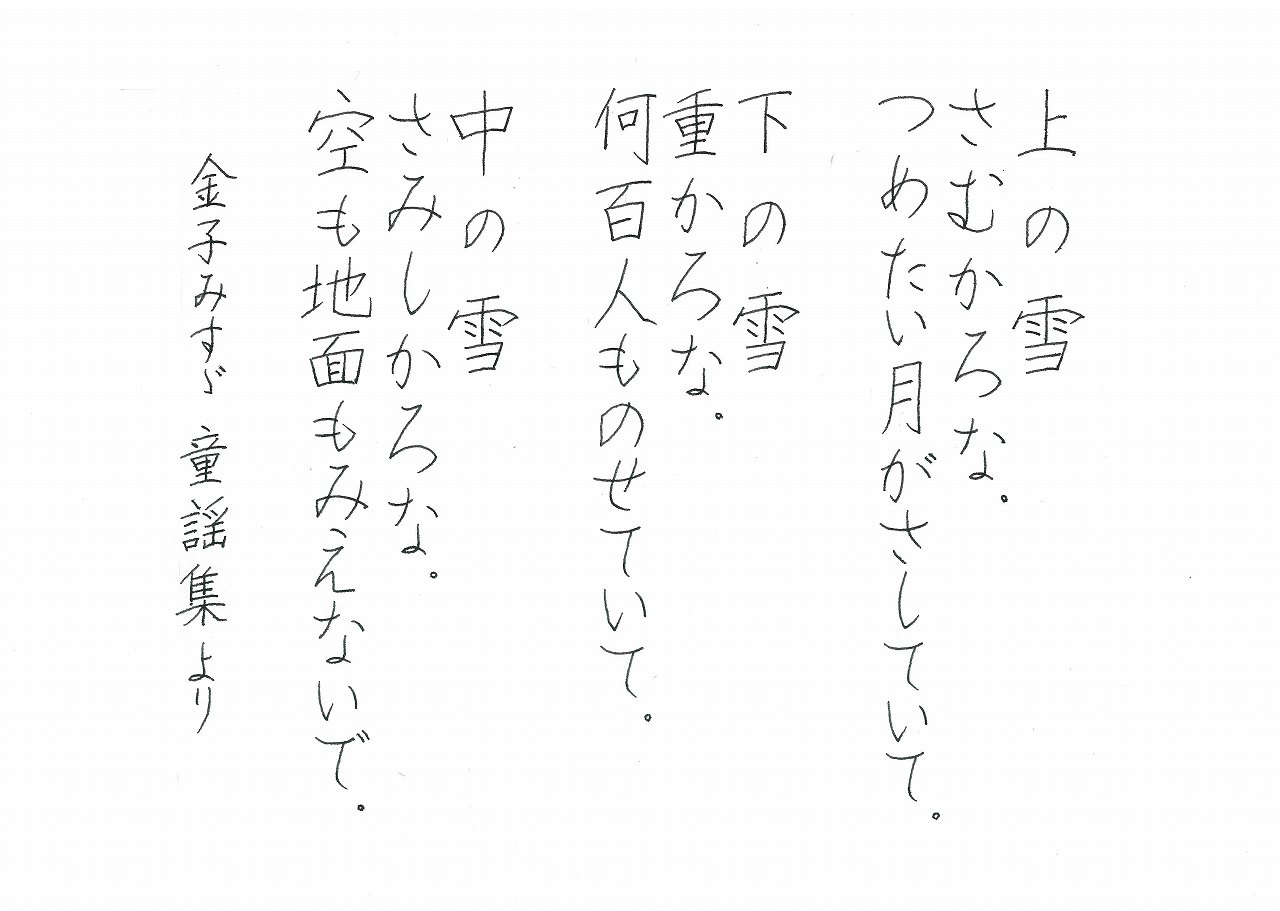 上の雪
さむかろな。
つめたい月がさしていて。
下の雪
重かろな。
何百人ものせていて。
中の雪
さみしかろな。
空も地面もみえないで。
金子みすゞ 童謡集より